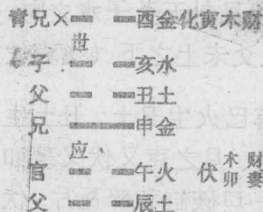 青兄× 酉金化寅木財
世
子 亥水
父 丑土
兄 申金
应
官 午火 伏 木卯 財妻
父 辰土